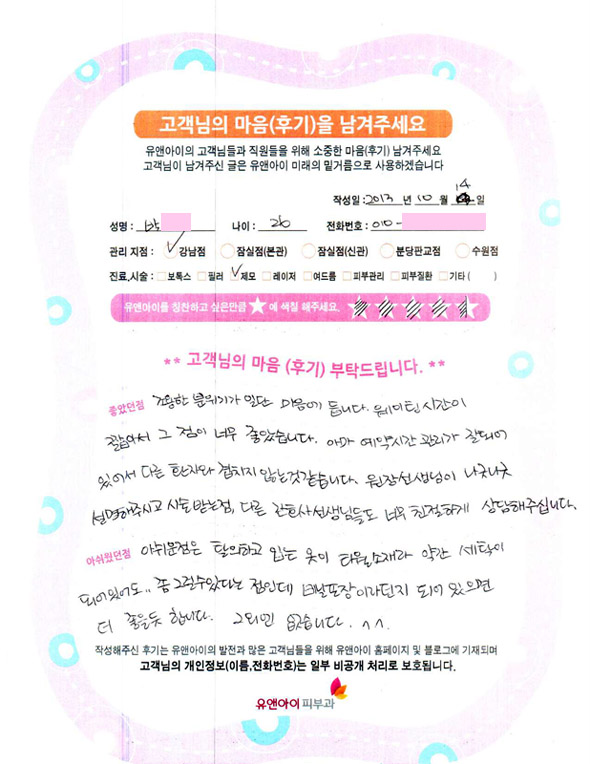 고객님의 마음(후기)을 남겨주세요
유앤아이의 고객님들과 직원들을 위해 소중한 마음(후기) 남겨주세요
고객님이 남겨주신 글은 유앤아이 미래의 밑거름으로 사용하겠습니다
작성일 : 2013 년 10 월 14 일
성명 : 나이 : 26 전화번호 : 010 -
관리 지점 : 강남점 잠실점(본관) 잠실점(신관) 분당판교점 수원점
진료,시술 : 보톡스 필러 제모 레이저 여드름 피부관리 피부질환 기타 ( )
유앤아이를 칭찬하고 싶은만큼 ★ 에 색칠 해주세요.
** 고객님의 마음 (후기) 부탁드립니다. **
좋았던점 조용한 분위기가 일단 마음에 듭니다. 웨이팅 시간이
짧아서 그 점이 너무 좋았습니다. 아마 예약시간 관리가 잘되어
있어서 다른 환자와 겹치지 않는것같습니다. 원장선생님이 나긋나긋
설명해주시고 시술받는점, 다른 간호사선생님들도 너무 친절하게 상담해주십니다.
아쉬웠던점 아쉬운점은 탈의하고 입는 옷이 타월소재라 약간 세탁이
되어있어도.. 좀 그럴수있다는 점인데 비닐포장이라던지 되어 있으면
더 좋을듯 합니다. 그외엔 없습니다. ^^.
작성해주신 후기는 유앤아이의 발전과 많은 고객님들을 위해 유앤아이 홈페이지 및 블로그에 기재되며
고객님의 개인정보(이름,전화번호)는 일부 비공개 처리로 보호됩니다.
유앤아이 피부과